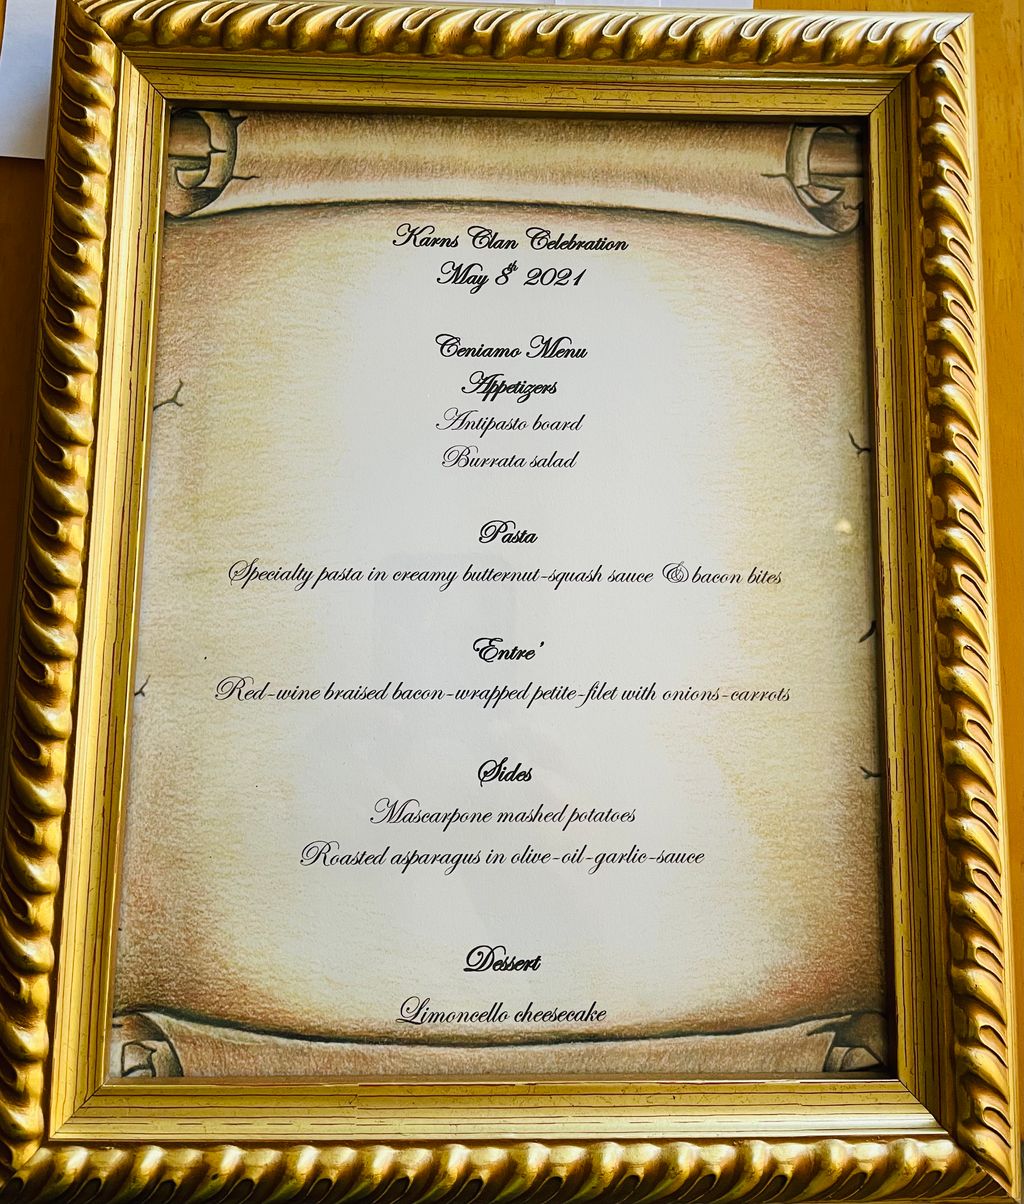 Karns Clan Celebration
May 8th 2021
Ceniamo Menu
Appetizers
Antipasto board
Burrata salad
Pasta
Specialty pasta in creamy butternut-squash sauce & bacon bites
Entre'
Red-wine braised bacon-wrapped petite-filet with onions-carrots
Sides
Mascarpone mashed potatoes
Roasted asparagus in olive-oil-garlic-sauce
Dessert
Limoncello cheesecake